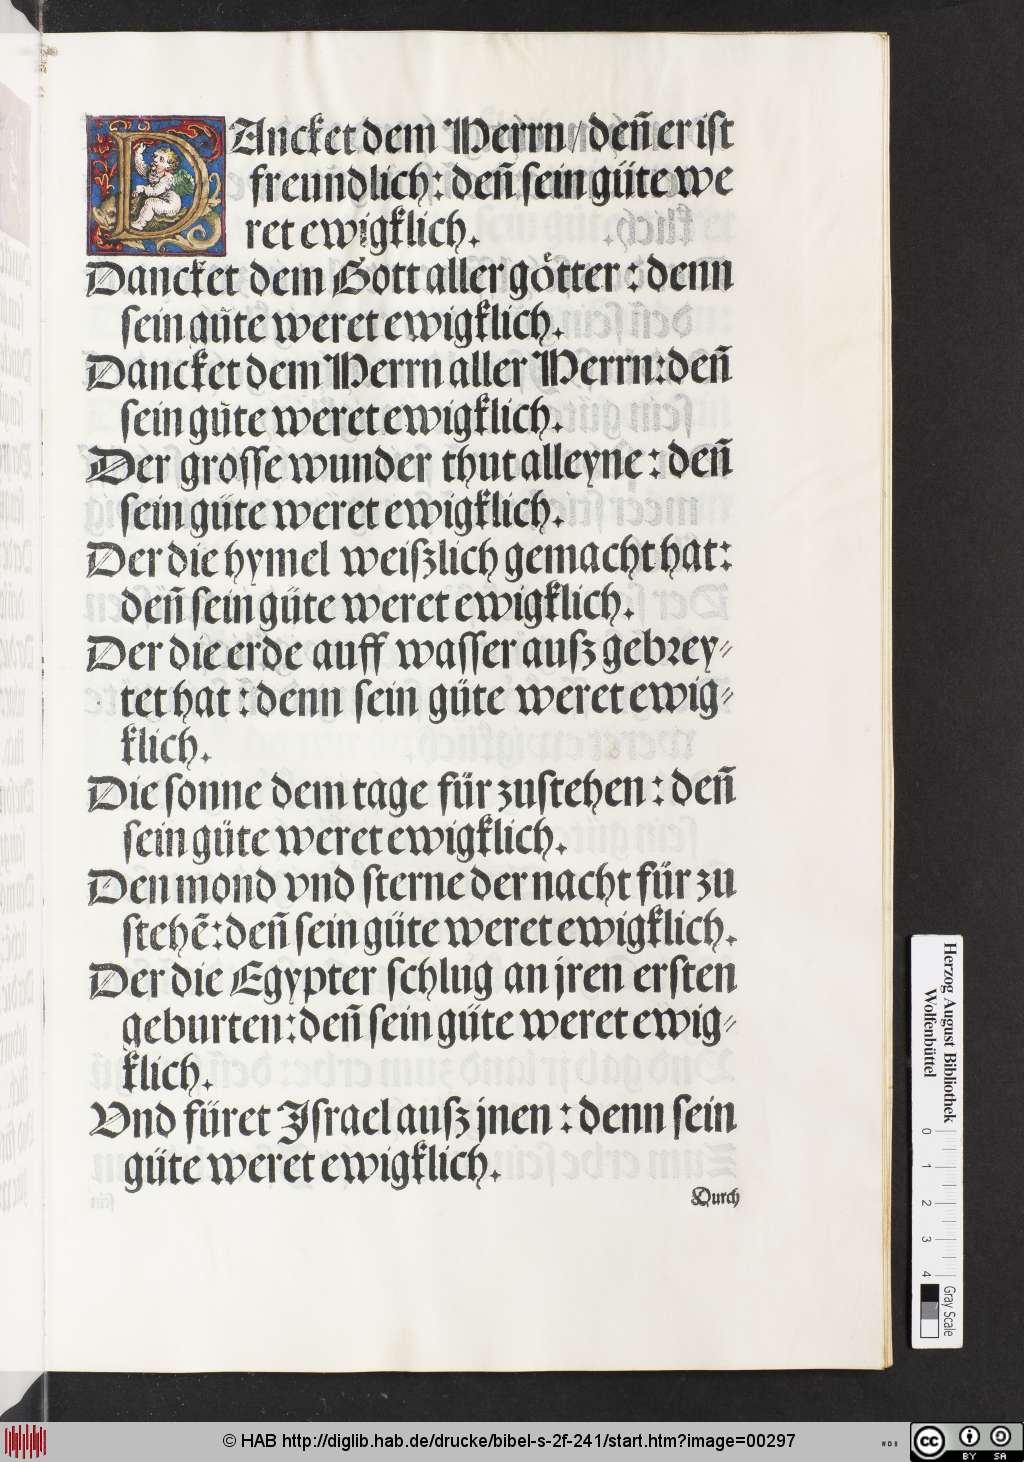 DAncket dem Herrn / deñ er ist
freundlich: deñ sein güte we
ret ewigklich.
Dancket dem Gott aller götter: denn
sein güte weret ewigklich.
Dancket dem Herrn aller Herrn: deñ
sein güte weret ewigklich.
Der grosse wunder thut alleyne: deñ
sein güte weret ewigklich.
Der die hymel weißlich gemacht hat:
deñ sein güte weret ewigklich.
Der die erde auff wasser auß gebrey-
tet hat: denn sein güte weret ewig-
klich.
Die sonne dem tage für zustehen: deñ
sein güte weret ewigklich.
Den mond vnd sterne der nacht für zu
stehẽ: deñ sein güte weret ewigklich.
Der die Egypter schlug an jren ersten
geburten: deñ sein güte weret ewig-
klich.
Vnd füret Israel auß jnen: denn sein
güte weret ewigklich.
Durch
Herzog August Bibliothek
Wolfenbüttel
0 1 2 3 4
Gray Scale
© HAB http://diglib.hab.de/drucke/bibel-s-2f-241/start.htm?image=00297
WDB
cc BY SA